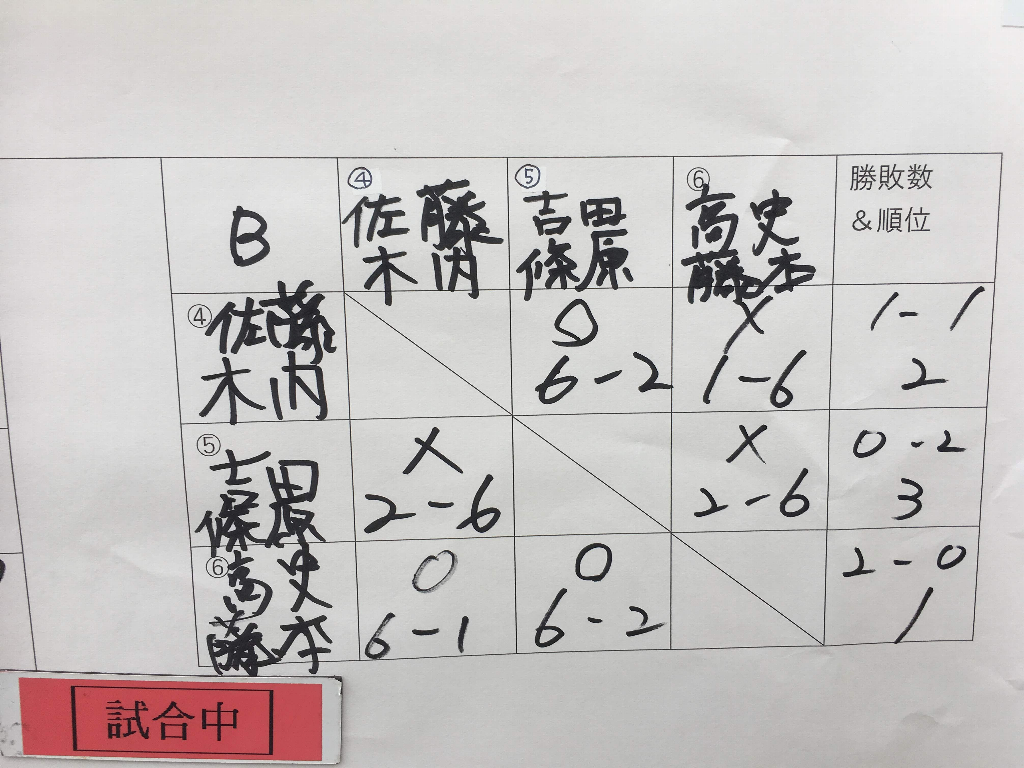 B
④
佐藤
木内
⑤
吉田
條原
⑥
高史
藤本
勝敗数
&順位
④
佐藤
木内
○
6-2
×
1-6
1-1
2
⑤
吉田
條原
×
2-6
×
2-6
0-2
3
⑥
高史
藤本
○
6-1
○
6-2
2-0
1
試合中